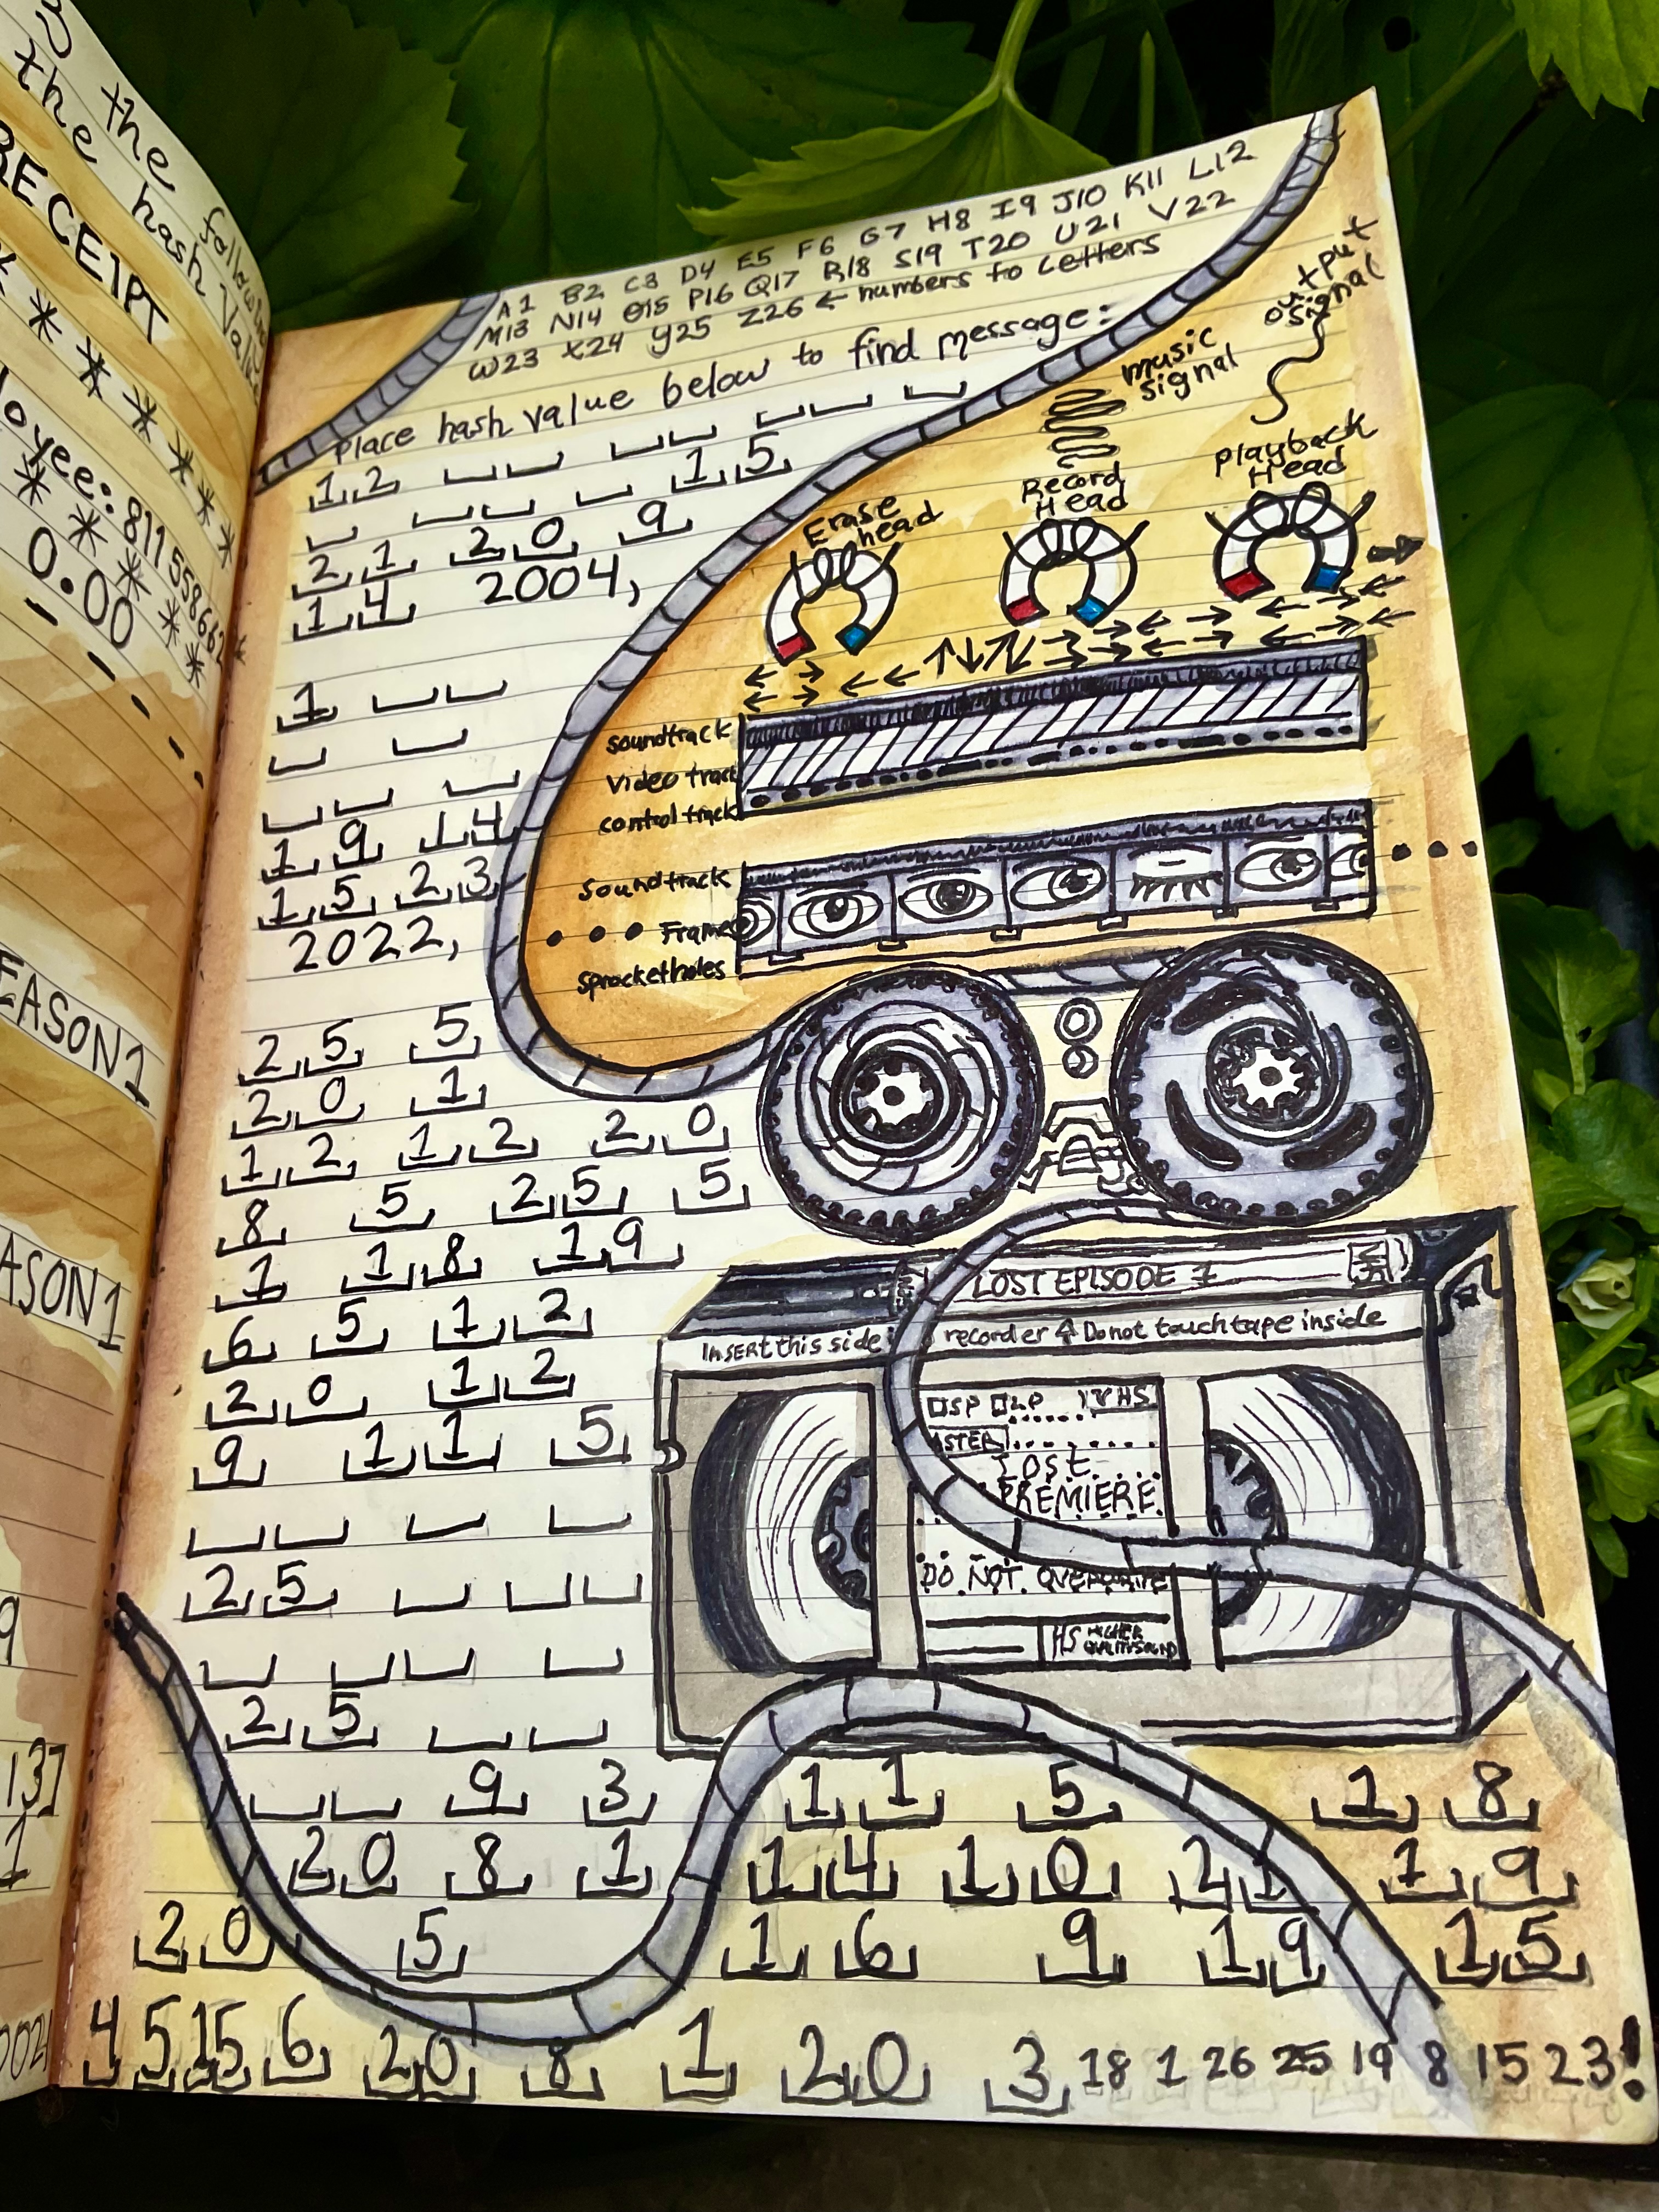 the
the hash Value
following
RECEIPT
* * * * * * *
loyee: 811558662
* * * * * *
0.00
- - - - - -
EASON 1
ASON 1
9
13]
1
A1 B2 C3 D4 E5 F6 G7 H8 I9 J10 K11 L12
M13 N14 O15 P16 Q17 R18 S19 T20 U21 V22
W23 X24 Y25 Z26 ← numbers to letters
Place hash value below to find message:
12
15
21 20 9
14 2004,
1
19 14
15 23
2022,
25 5
20 1
12 12 20
8 5 25 5
1 18 19
6 5 12
20 12
9 11 5
25
25
9 3 11 5 18
20 8 1 14 10 21 19
20 5 16 9 19 15
4 5 15 6 20 8 1 20 3 18 1 26 25 19 8 15 23!
output signal
music signal
Erase head
Record Head
Playback Head
soundtrack
video track
control track
soundtrack
Frame
sprocketholes
LOST EPISODE 1
Insert this side recorder Do not touch tape inside
SP LP VHS
LOST
PREMIERE
DO NOT OVERWRITE
HS HIGHER QUALITY SOUND